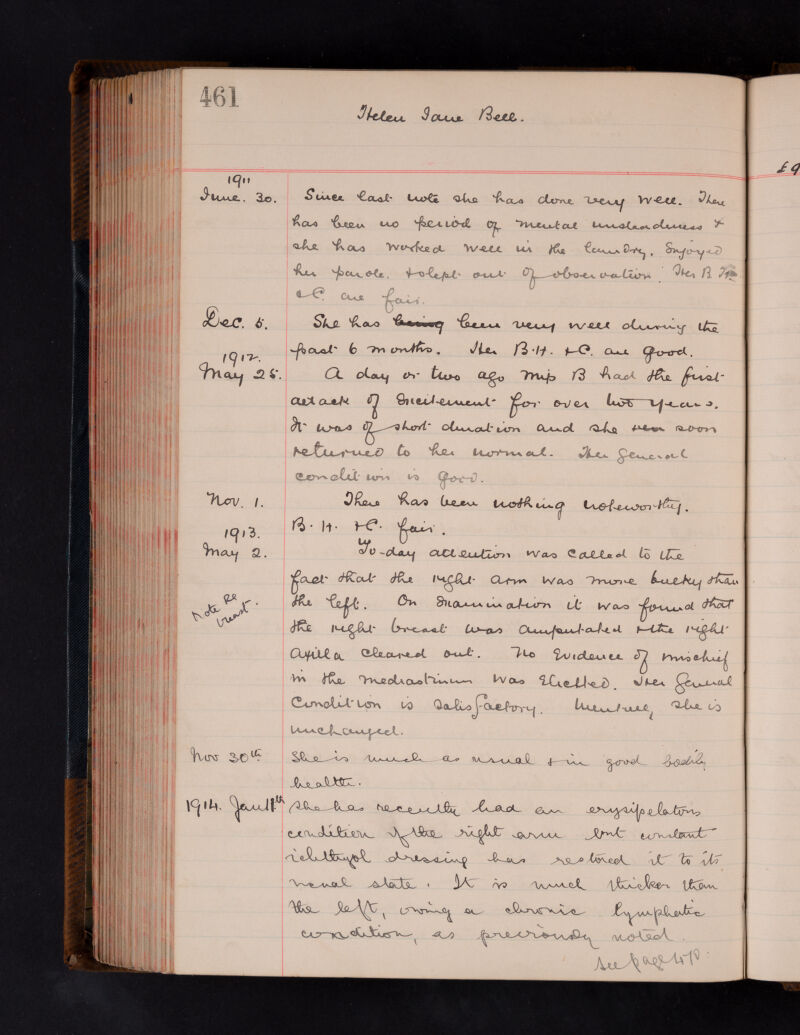 461
Helen Jane Bell.
1911
June. 30. Since last note she has done very well. There
has been no period of mental unsteadiness &
she has worked well in the laundry. Enjoyed
her parole. & slept out of observation. Her B. H.
& C. are fair.
Dec. 5. She has being been very well during the
past 6 months. Her B.H. & C. are good.
1912.
May 25. A day or two ago Miss B had the first
attack of Excitement for over two years.
It was of short duration and she soon
returned to her normal. Her general
condition is good.
Nov. 1. There has been nothing noteworthy.
B. H. & C. fair.
1913.
May 2. To-day attention was called to the
fact that the right arm was more bulky than
the left. On Examination it was found that
Note re
breast.
the right breast was amputated & the right
axilla cleared out. No Evidence of mischief
in the mediastinum was Elicited. Her General
Condition is Satisfactory. Mentally, she is
unchanged.
Nov 30th She is much as usual & in good bodily
health.
1914. Jan 11th She has recently had an erysipelatous
condition of the right arm but constant
ichthyol dressing has restored it to its
usual state. It is much thicker than
the left, owing a chronic lymphatic
condition, as previously noted.
See page
£9